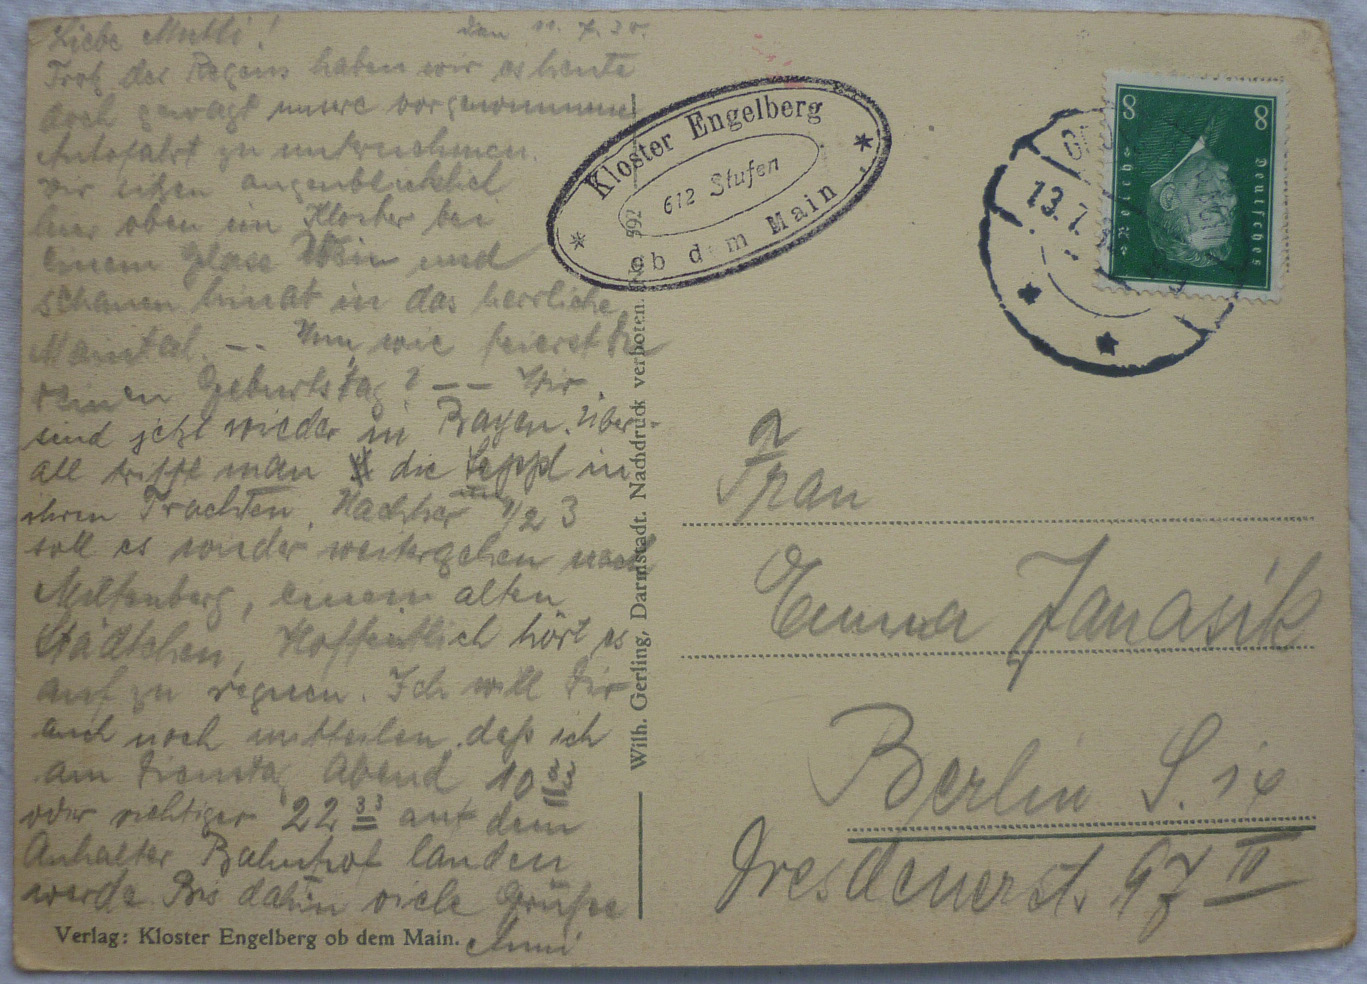 Liebe Mutti! den 11. 7. 30.
Trotz des Regens haben wir es heute
doch gewagt unsere vorgenommene
Autofahrt zu unternehmen.
Wir sitzen augenblicklich
hier oben im Kloster bei
einem Glase Wein und
schauen hinab in das herrliche
Maintal. -- Nun, wie feierst Du
deinen Geburtstag? -- Wir
sind jetzt wieder in Bayern. Über-
all trifft man die Seppl in
ihren Trachten. Nachher 1/2 3
soll es wieder weitergehen nach
Miltenberg, einem alten
Städtchen. Hoffentlich hört es
auf zu regnen. Ich will Dir
auch noch mitteilen, daß ich
am Dienstag Abend 10 33
oder richtiger 22 33 auf dem
Anhalter Bahnhof landen
werde. Bis dahin viele Grüße
Anni
Verlag: Kloster Engelberg ob dem Main.
Wilh. Gerling, Darmstadt. Nachdruck verboten. No. 392
Kloster Engelberg
612 Stufen
ob dem Main
13.7.
8 8
Deutsches
Reich
Frau
Emma Janasik
Berlin S. 14
Dresdenerst. 97 IV